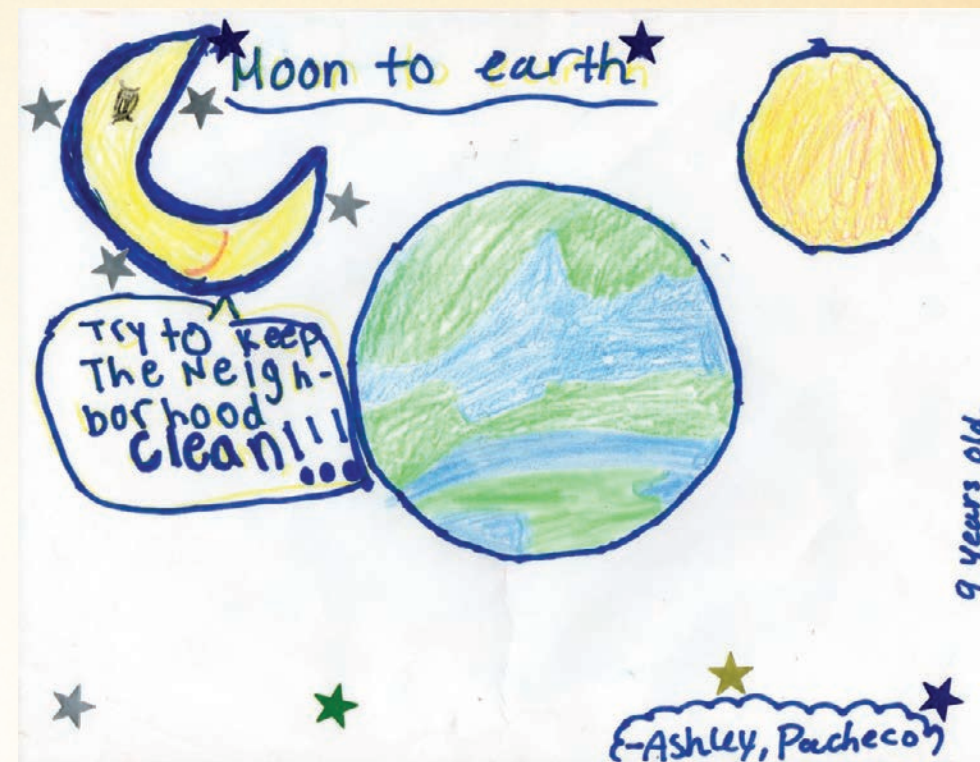 Moon to earth
Try to keep
The Neigh-
borhood
clean!!!
9 years old
-Ashley, Pacheco